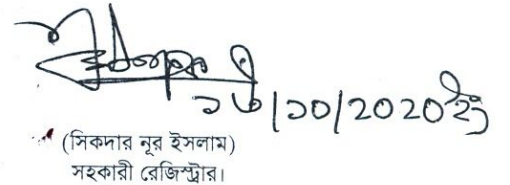 ১৬/১০/২০২০ইং
(সিকদার নূর ইসলাম)
সহকারী রেজিস্ট্রার।